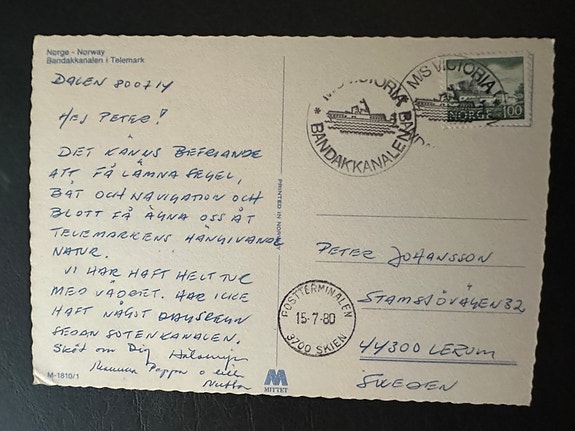 Norge - Norway
Bandakkanalen i Telemark
DALEN 800714
HEJ PETER!
DET KÄNNS BEFRIANDE
ATT FÅ LÄMNA SEGEL,
BÅT OCH NAVIGATION OCH
BLOTT FÅ ÄGNA OSS ÅT
TELEMARKENS HÄNGIVANDE
NATUR.
VI HAR HAFT HELT TUR
MED VÄDRET. HAR ICKE
HAFT NÅGOT
SEDAN SOTENKANALEN.
Sköt om Dig
Pappa o
M-1810/1
PRINTED IN NORWAY
M
MITTET
M/S VICTORIA
* BANDAKKANALEN *
M/S VICTORIA
NORGE 100
POSTTERMINALEN
15-7-80
3700 SKIEN
PETER JOHANSSON
STAMSJÖVÄGEN 32
44300 LERUM
SWEDEN